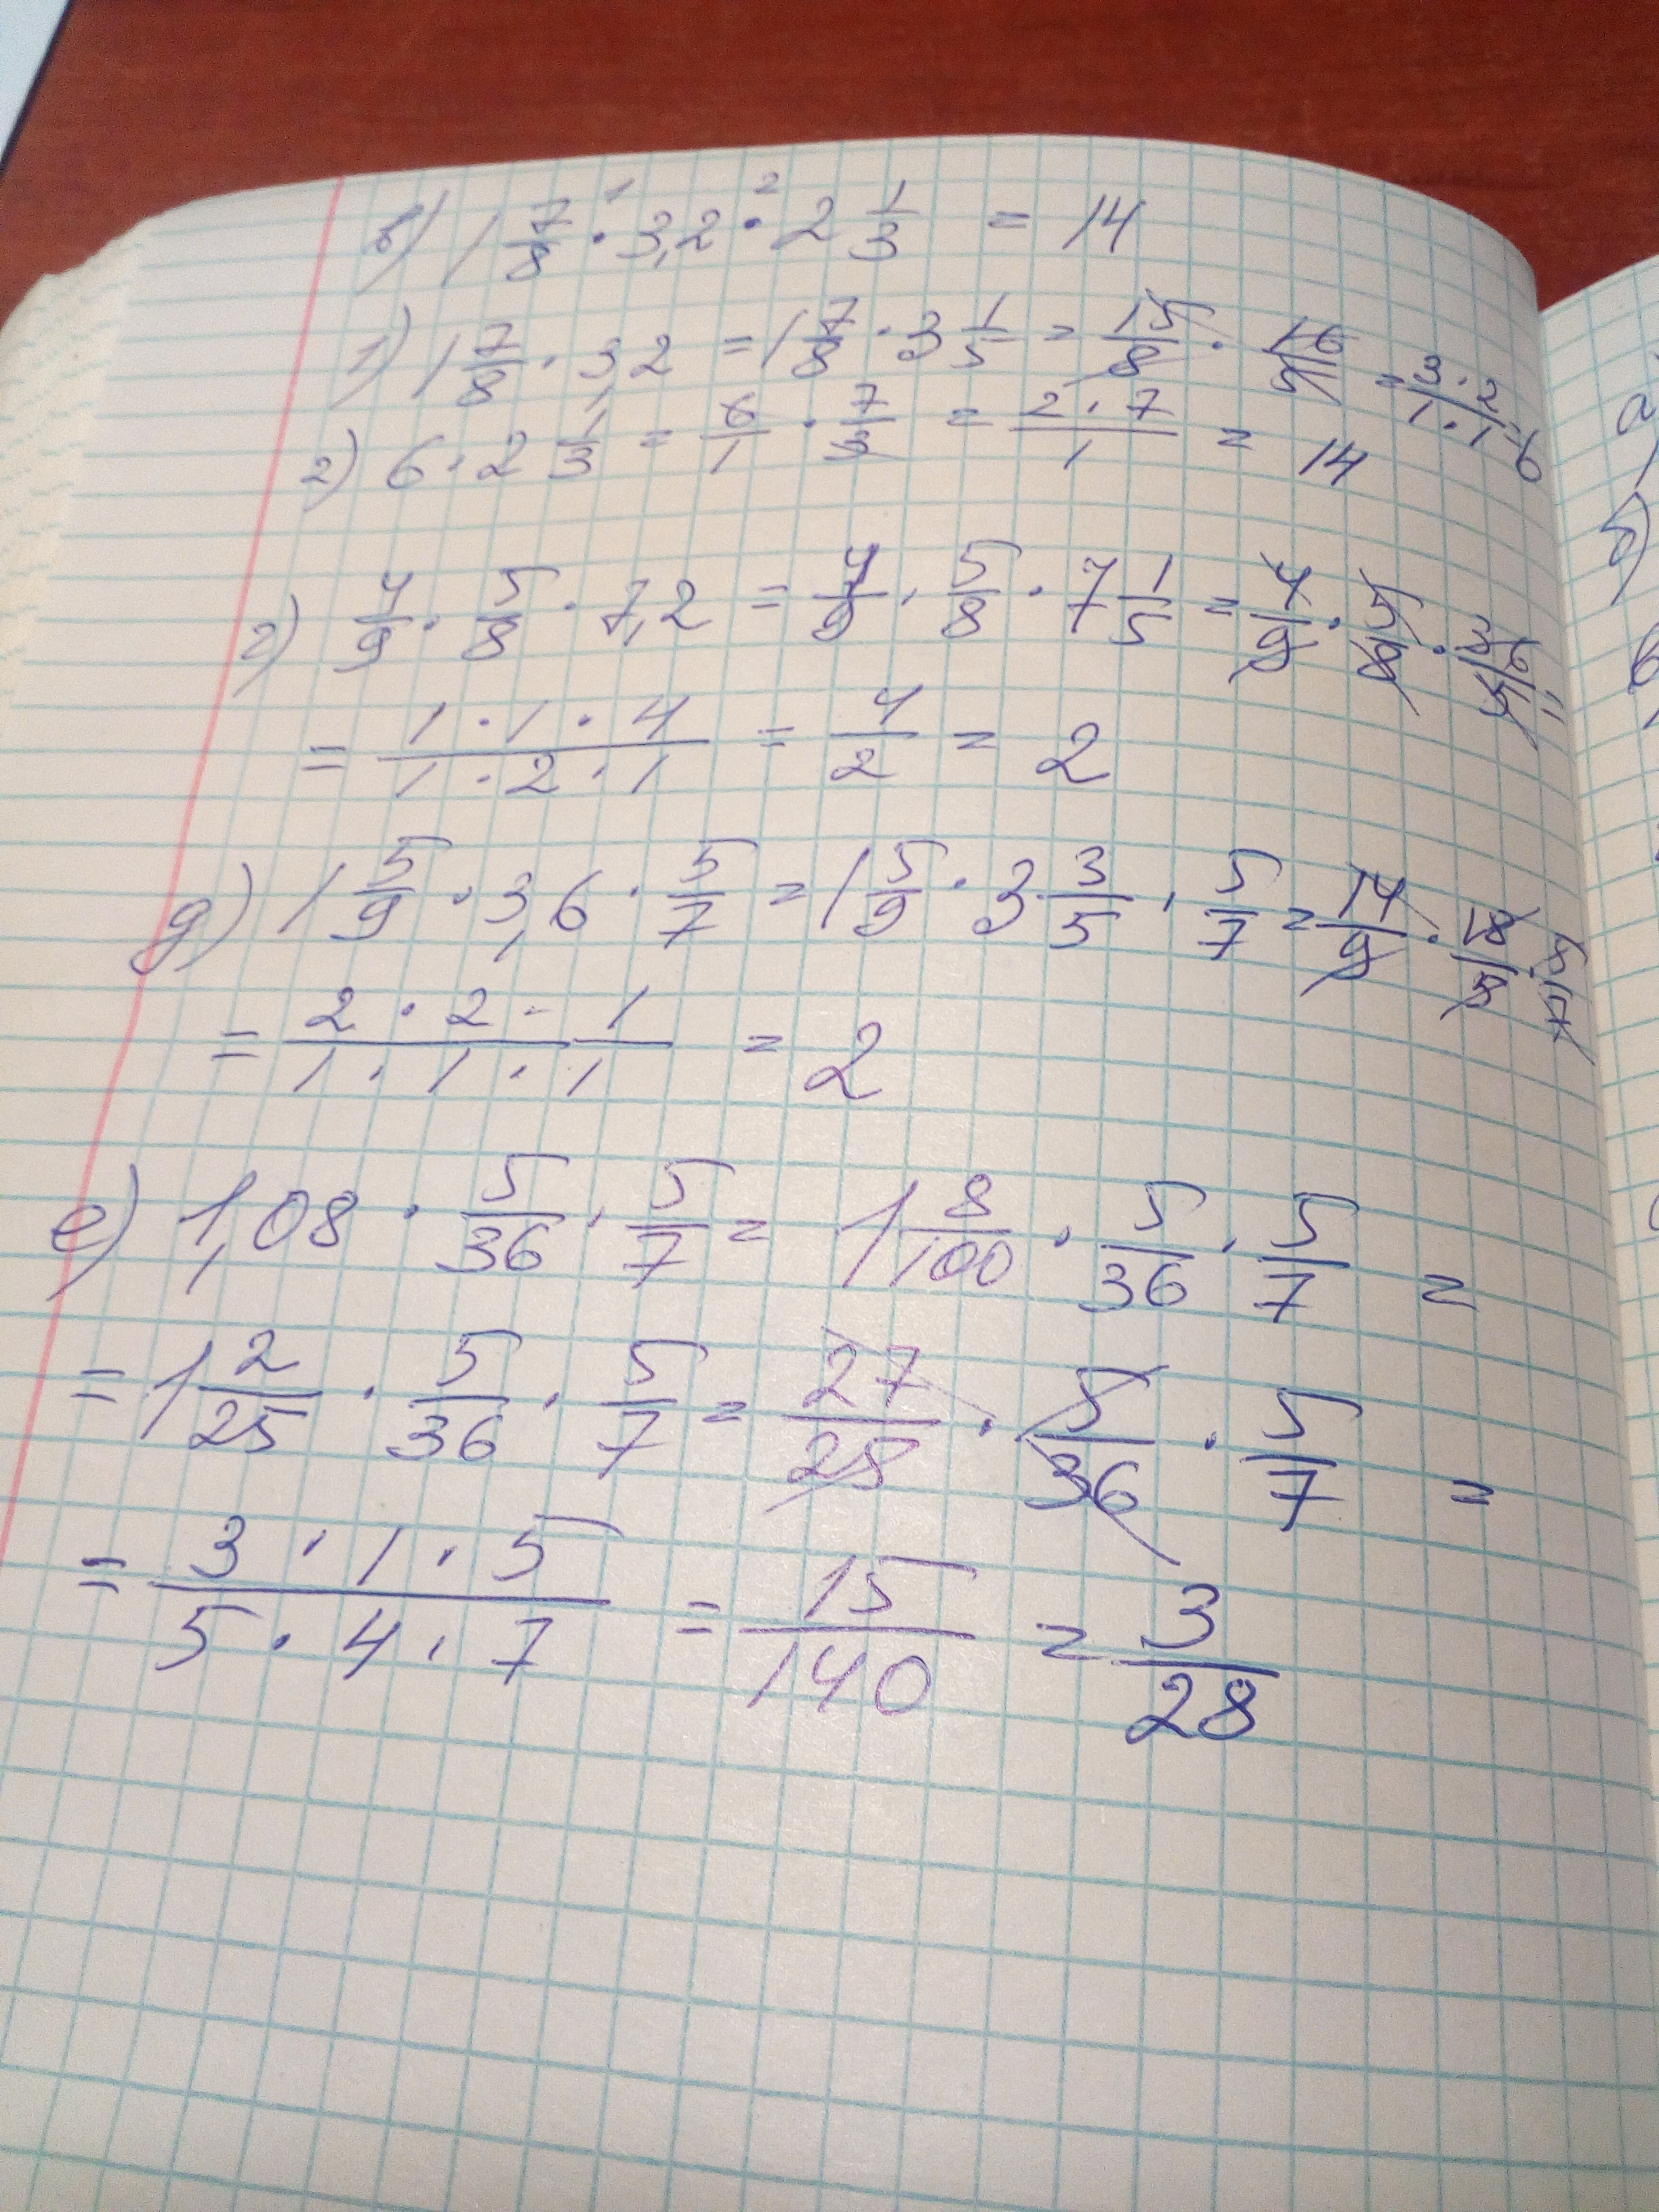 в) 1 7/8 · 3,2 · 2 1/3 = 14
1) 1 7/8 · 3,2 = 1 7/8 · 3 1/5 = 15/8 · 16/5 = 3·2/1·1 = 6
2) 6 · 2 1/3 = 6/1 · 7/3 = 2·7/1 = 14
г) 4/9 · 5/8 · 7,2 = 4/9 · 5/8 · 7 1/5 = 4/9 · 5/8 · 36/5 =
= 1·1·4/1·2·1 = 4/2 = 2
д) 1 5/9 · 3,6 · 5/7 = 1 5/9 · 3 3/5 · 5/7 = 14/9 · 18/5 · 5/7
= 2·2·1/1·1·1 = 2
е) 1,08 · 5/36 · 5/7 = 1 8/100 · 5/36 · 5/7 =
= 1 2/25 · 5/36 · 5/7 = 27/25 · 5/36 · 5/7 =
= 3·1·5/5·4·7 = 15/140 = 3/28
а)
б)